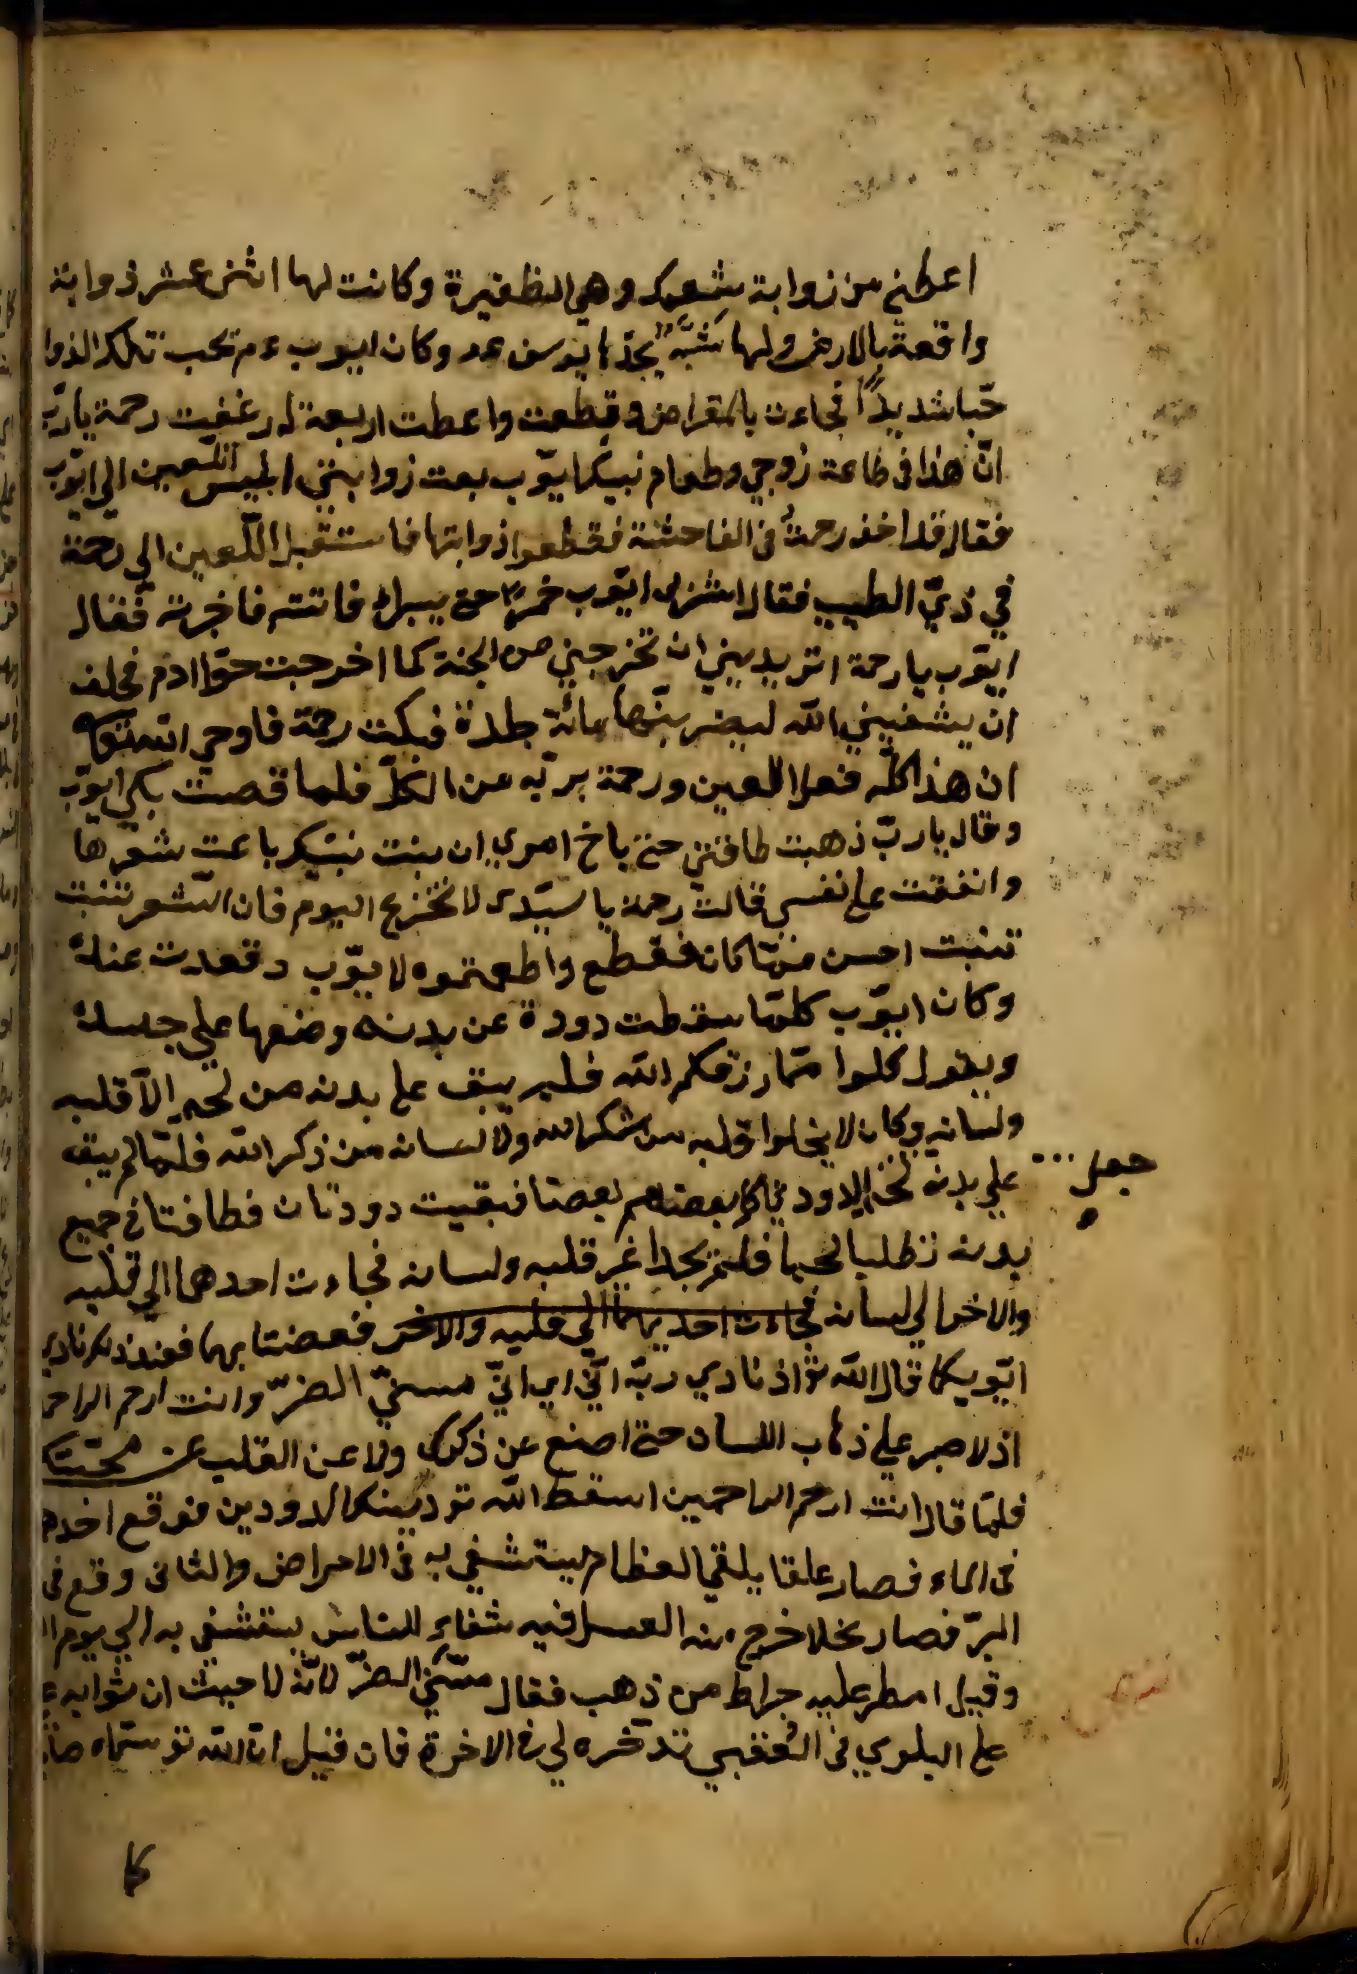 اعطني من زوابة شعرك وهي الظفيرة وكانت لها اثنى عشر ذوابة
واقعة بالارض ولها شبه بجدها يوسف عم وكان ايوب عم تحب تلك الذوا
حبا شديدا فجاءت بالمقراض وقطعت واعطت اربعة له رغفيت رحمة يارب
ان هذا في طاعة زوجي وطعام نبيك ايوب بعت زوابتي ابليس اللعين الي ايوب
فقال قد اخذ رحمة في الفاحشة فقطعوا ذوابتها فاستقبل اللعين الي رحمة
في زي الطبيب فقال اشربى ايوب خمرا حتى يبراء فاتته فاخبرته فقال
ايوب يارحمة اتريديني ان تخرجيني من الجنة كما اخرجت حوا ادم فحلف
ان يشفيني الله ليضربنها مائة جلدة فبكت رحمة فاوحي الله تعو
ان هذا كله فعل اللعين ورحمة برية عن الكل فلما قصت بكي ايوب
وقال يارب ذهبت طاقتي حتى باخ امري ان بنت نبيك باعت شعرها
وانفقت علي نفسي قالت رحمة يا سيدي لا تخزع اليوم فان الشعر تنبت
تنبت احسن مما كان فقطع واطعمتوه لايوب وقعدت عنده
وكان ايوب كلما سقطت دودة عن بدنه وضعها علي جسده
ويقول كلوا مما رزقكم الله فلم يبق علي بدنه من لحم الا قلبه
ولسانه وكان لا يخلوا قلبه من شكر الله ولا لسانه من ذكر الله فلما لم يبق
علي بدنه لحم الدود ياكل بعضهم بعضا فبقيت دودتان فطافتا في جميع
جعل
بدنه تطلبا لحما فلم يجدا غير قلبه ولسانه فجاءت احدهما الي قلبه
والاخر الي لسانه فجاءت احديهما الي قلبه والاخر فعضتا بهما فعند ذلك نادي
ايوب كما قال الله تو اذ نادي ربه اني اي اني مسني الضر وانت ارحم الراحم
اذ لا صبر علي ذهاب اللسان حتى اصنع عن ذكرك ولا عن القلب عن محبتك
فلما قال انت ارحم الراحمين اسقط الله تو دينك الدودين فوقع احده
في الماء فصار علقا يلقي العظام يستشفي به في الامراض والثاني وقع في
البر فصار نحلا خرج منه العسل فيه شفاء للناس يستشفي به الي يوم ا
وقيل امطر عليه جراد من ذهب فقال مسني الضر لانه لا حبث ان ثوابه
علي البلوي في العقبي تدخره لي في الاخرة فان قيل ان الله تو سماه صا
كا